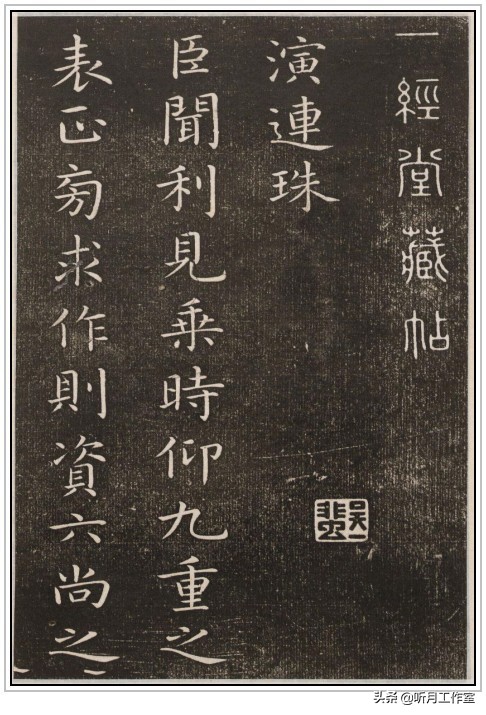 一經堂藏帖
演連珠
臣聞利見乗時仰九重之
表正旁求作則資六尚之
吴一蜚
头条 @听月工作室